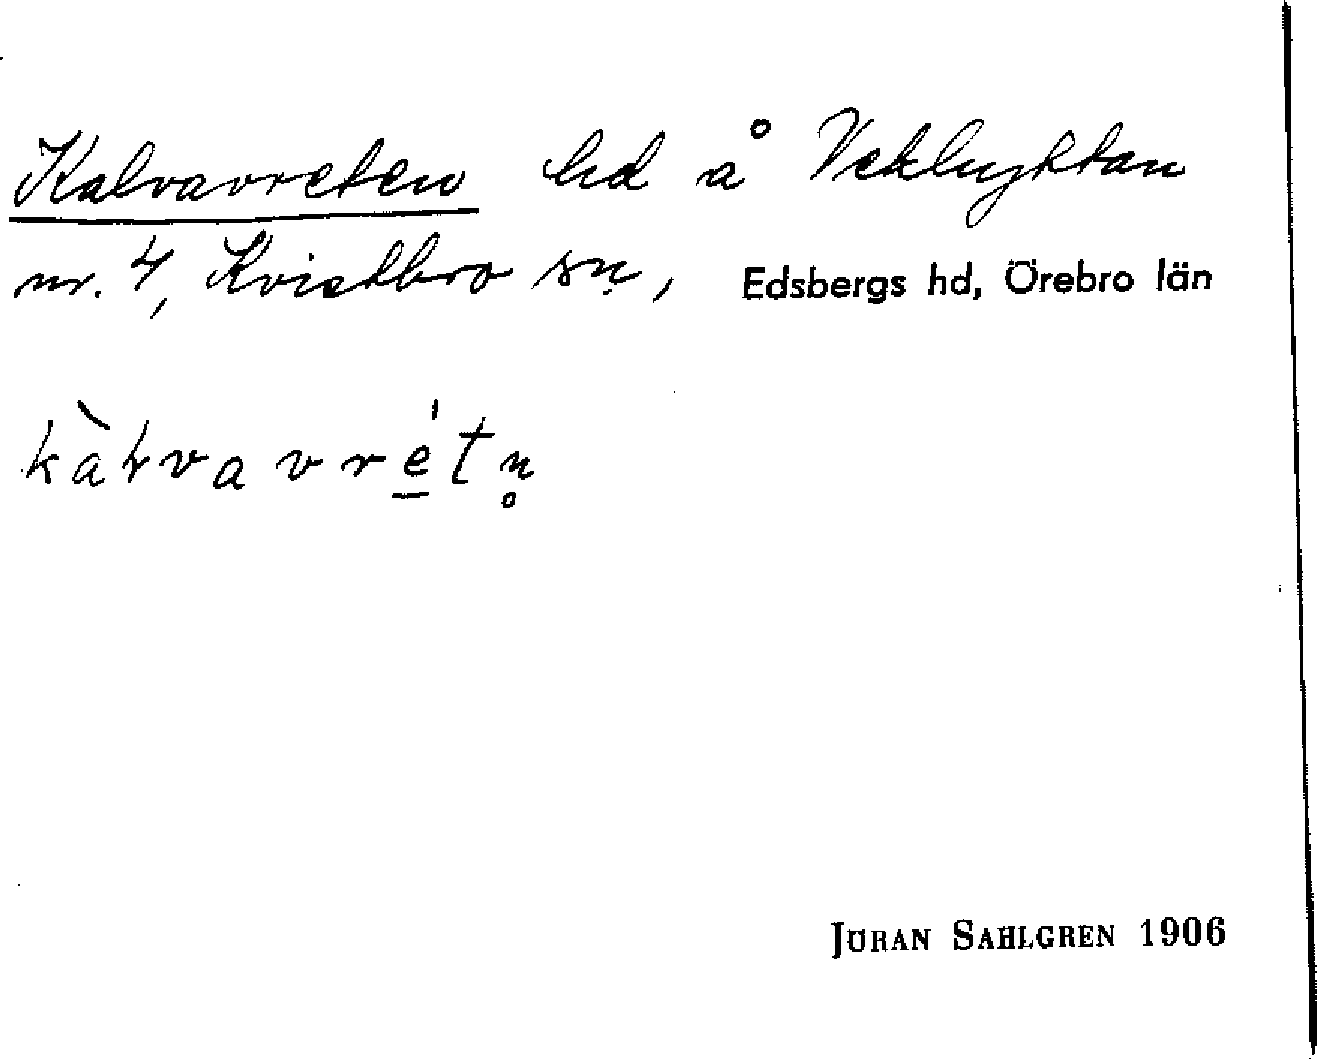 Kalvavreten hd å Vekhyttan
nr. 4, Kvistbro sn, Edsbergs hd, Örebro län
kàɫvavré̲tn̥
JÖRAN SAHLGREN 1906